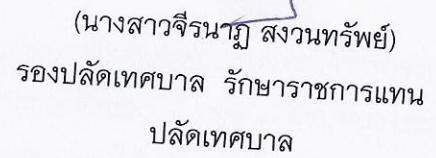 (นางสาวจีรนาฏ สงวนทรัพย์)
รองปลัดเทศบาล รักษาราชการแทน
ปลัดเทศบาล